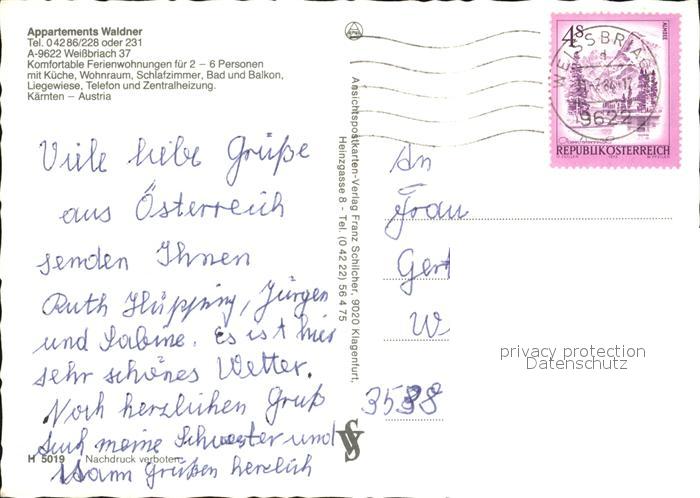 Appartements Waldner
Tel. 0 42 86/228 oder 231
A-9622 Weißbriach 37
Komfortable Ferienwohnungen für 2 – 6 Personen
mit Küche, Wohnraum, Schlafzimmer, Bad und Balkon,
Liegewiese, Telefon und Zentralheizung.
Kärnten – Austria
Viele liebe Grüße
aus Österreich
senden Ihnen
Ruth Hüpping, Jürgen
und Sabine. Es ist hier
sehr schönes Wetter.
Noch herzlichen Gruß
auch meine Schwester und
Mann grüßen herzlich
H 5019 Nachdruck verboten
Ansichtspostkarten-Verlag Franz Schilcher, 9020 Klagenfurt,
Heinzgasse 8 - Tel. (0 42 22) 56 4 75
4 S
ALMSEE
WEISSBRIACH
9622
REPUBLIK ÖSTERREICH
An
Frau
Gert
W
3538
privacy protection
Datenschutz